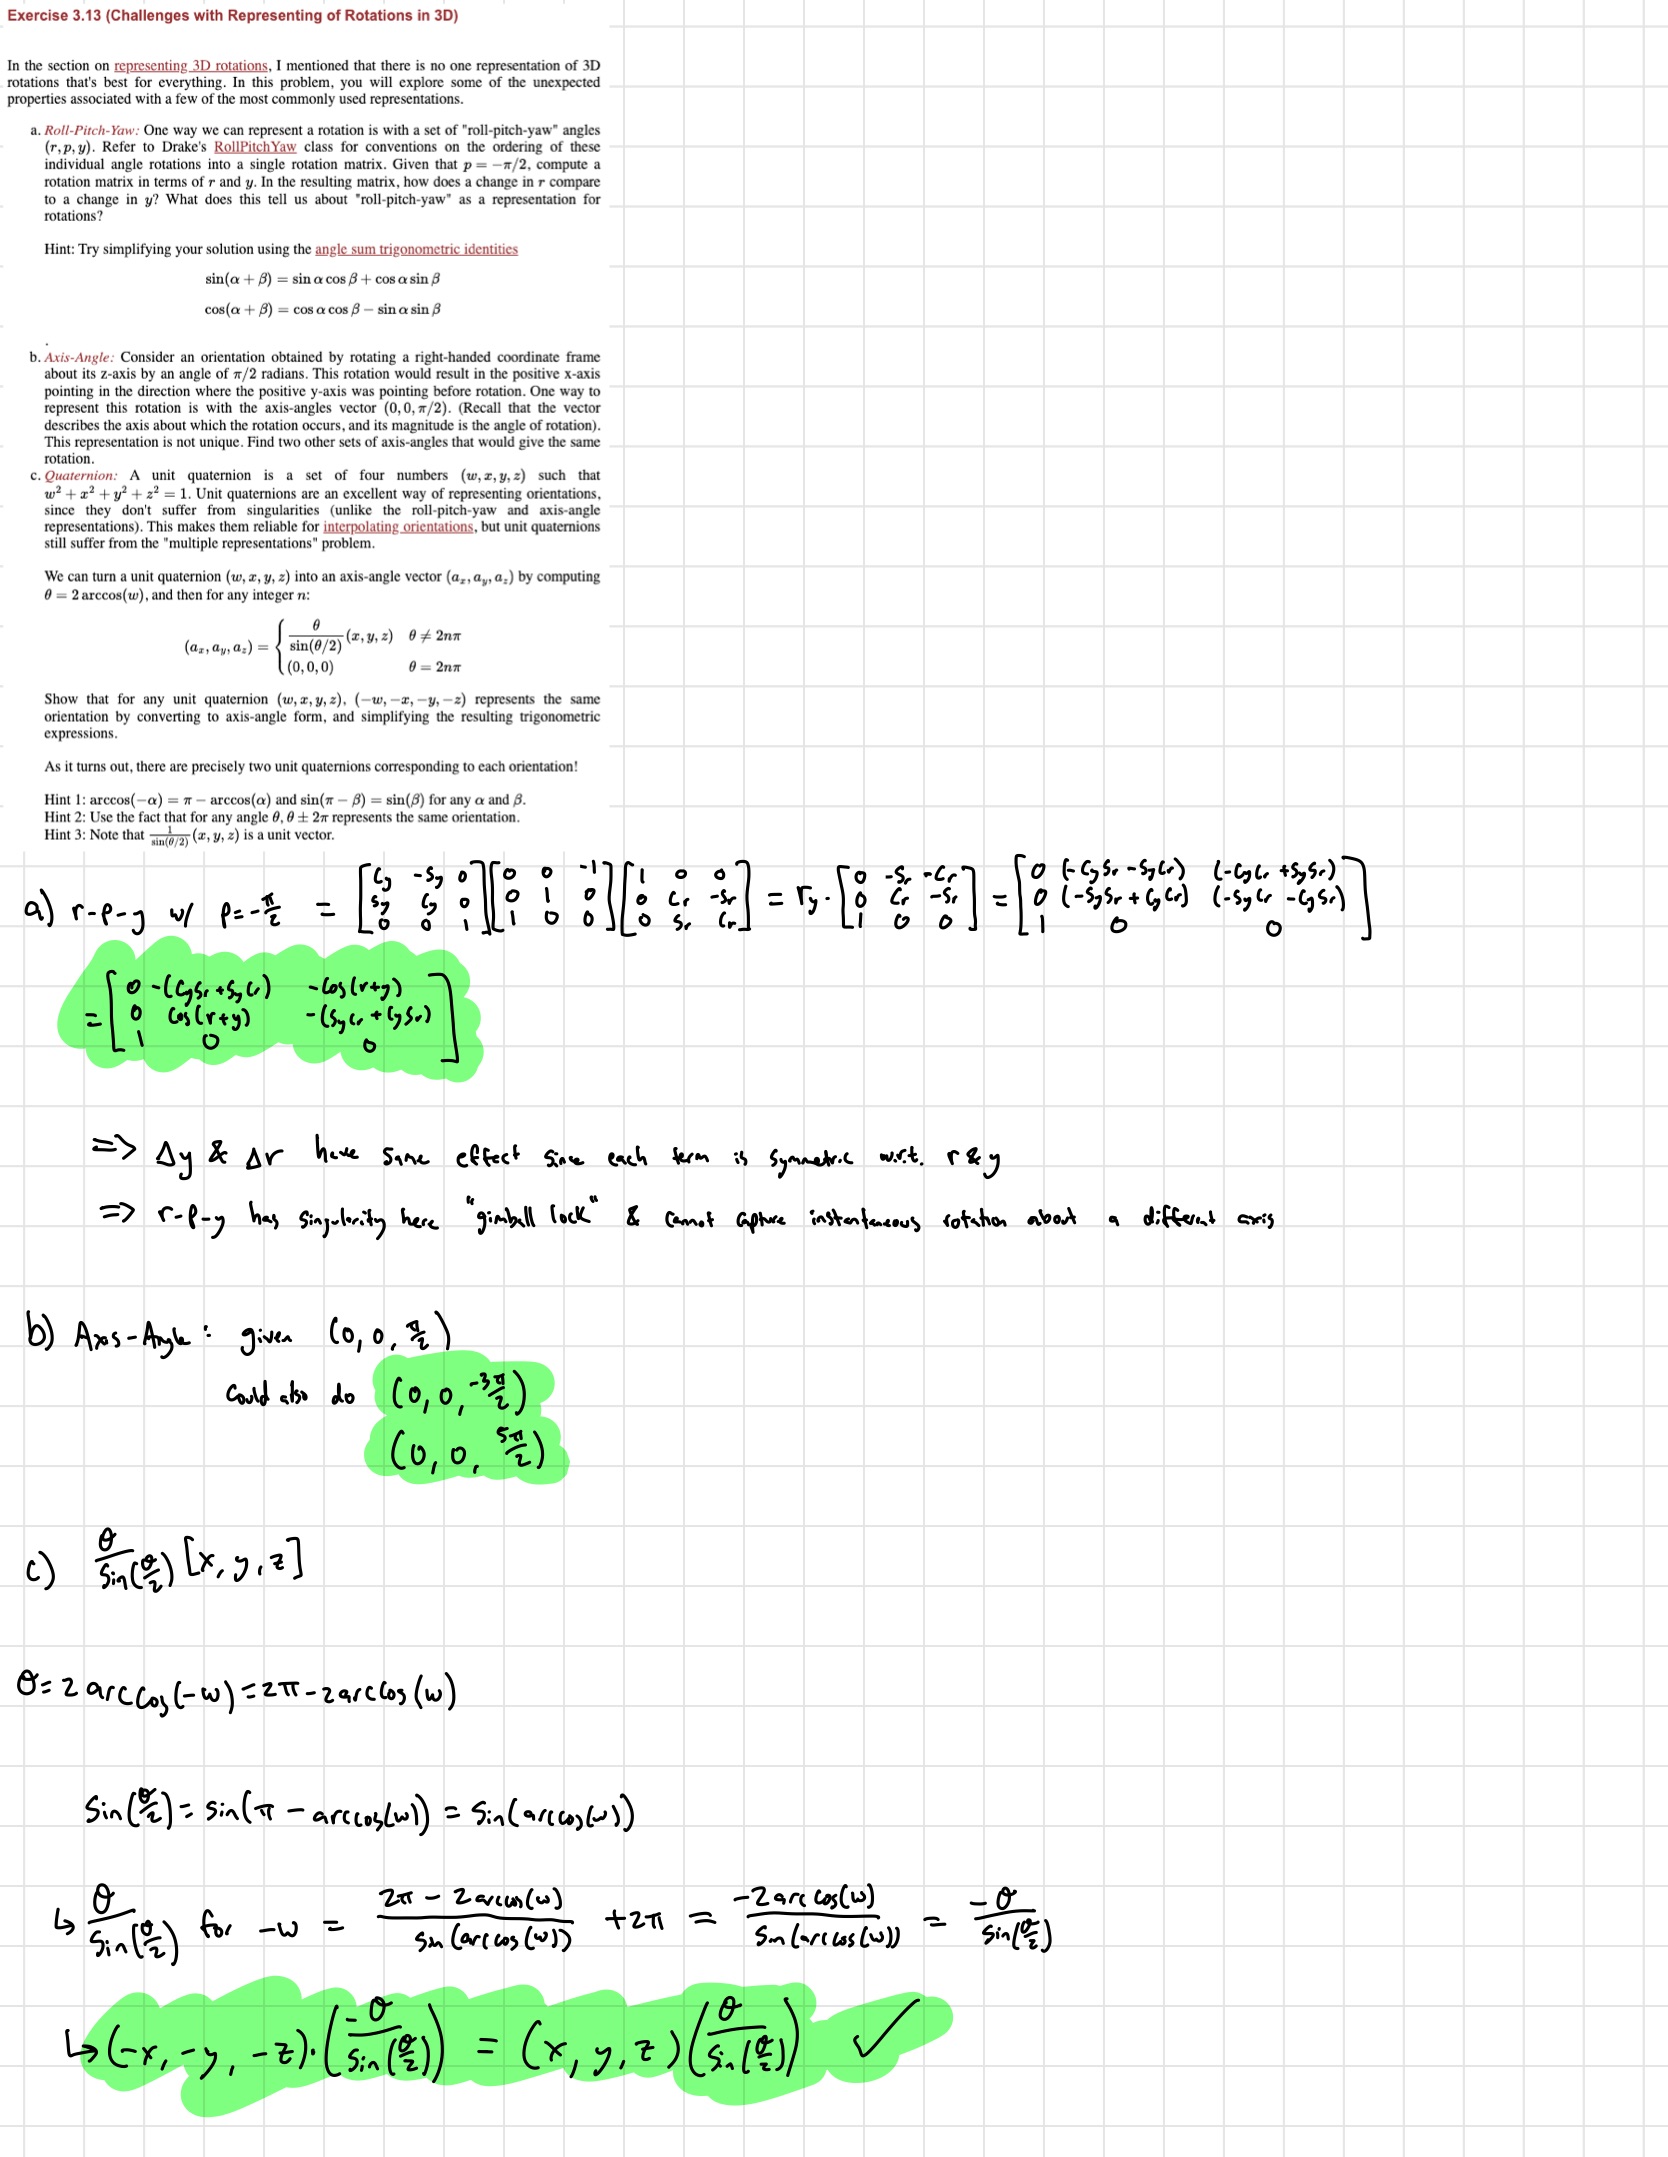 Exercise 3.13 (Challenges with Representing of Rotations in 3D)
In the section on representing 3D rotations, I mentioned that there is no one representation of 3D
rotations that's best for everything. In this problem, you will explore some of the unexpected
properties associated with a few of the most commonly used representations.
a. Roll-Pitch-Yaw: One way we can represent a rotation is with a set of "roll-pitch-yaw" angles
(r, p, y). Refer to Drake's RollPitchYaw class for conventions on the ordering of these
individual angle rotations into a single rotation matrix. Given that p = −π/2, compute a
rotation matrix in terms of r and y. In the resulting matrix, how does a change in r compare
to a change in y? What does this tell us about "roll-pitch-yaw" as a representation for
rotations?
Hint: Try simplifying your solution using the angle sum trigonometric identities
sin(α + β) = sin α cos β + cos α sin β
cos(α + β) = cos α cos β − sin α sin β
.
b. Axis-Angle: Consider an orientation obtained by rotating a right-handed coordinate frame
about its z-axis by an angle of π/2 radians. This rotation would result in the positive x-axis
pointing in the direction where the positive y-axis was pointing before rotation. One way to
represent this rotation is with the axis-angles vector (0, 0, π/2). (Recall that the vector
describes the axis about which the rotation occurs, and its magnitude is the angle of rotation).
This representation is not unique. Find two other sets of axis-angles that would give the same
rotation.
c. Quaternion: A unit quaternion is a set of four numbers (w, x, y, z) such that
w² + x² + y² + z² = 1. Unit quaternions are an excellent way of representing orientations,
since they don't suffer from singularities (unlike the roll-pitch-yaw and axis-angle
representations). This makes them reliable for interpolating orientations, but unit quaternions
still suffer from the "multiple representations" problem.
We can turn a unit quaternion (w, x, y, z) into an axis-angle vector (aₓ, a_y, a_z) by computing
θ = 2 arccos(w), and then for any integer n:
(aₓ, a_y, a_z) = { θ/sin(θ/2) (x, y, z) θ ≠ 2nπ
(0, 0, 0) θ = 2nπ
Show that for any unit quaternion (w, x, y, z), (−w, −x, −y, −z) represents the same
orientation by converting to axis-angle form, and simplifying the resulting trigonometric
expressions.
As it turns out, there are precisely two unit quaternions corresponding to each orientation!
Hint 1: arccos(−α) = π − arccos(α) and sin(π − β) = sin(β) for any α and β.
Hint 2: Use the fact that for any angle θ, θ ± 2π represents the same orientation.
Hint 3: Note that 1/sin(θ/2) (x, y, z) is a unit vector.
a) r-p-y w/ p=-π/2 = [Cy -Sy 0; Sy Cy 0; 0 0 1][0 0 -1; 0 1 0; 1 0 0][1 0 0; 0 Cr -Sr; 0 Sr Cr] = ry · [0 -Sr -Cr; 0 Cr -Sr; 1 0 0] = [0 (-CySr -SyCr) (-CyCr +SySr); 0 (-SySr + CyCr) (-SyCr -CySr); 1 0 0]
= [0 -(CySr +SyCr) -Cos(r+y); 0 Cos(r+y) -(SyCr + CySr); 1 0 0]
=> Δy & Δr have same effect since each term is symmetric w.r.t. r & y
=> r-p-y has singularity here "gimball lock" & cannot capture instantaneous rotation about a different axis
b) Axis-Angle: given (0, 0, π/2)
Could also do (0, 0, -3π/2)
(0, 0, 5π/2)
c) θ/Sin(θ/2) [x, y, z]
θ = 2 arccos(-w) = 2π - 2arccos(w)
Sin(θ/2) = sin(π - arccos(w)) = Sin(arccos(w))
↳ θ/Sin(θ/2) for -w = 2π - 2arccos(w)/Sin(arccos(w)) +2π = -2arccos(w)/Sin(arccos(w)) = -θ/Sin(θ/2)
↳ (-x, -y, -z)·(-θ/Sin(θ/2)) = (x, y, z)(θ/Sin(θ/2)) ✓